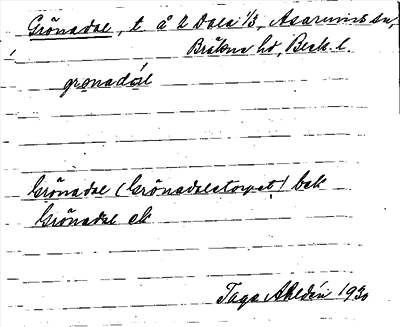 Grönadal, t å 2 Dala 1/3, Asarums sn,
Bräkne hd, Blek. l.
grönadál
Grönadal (Grönadalstorpet) bek
Grönadal ek
Tage Ahldén 1930